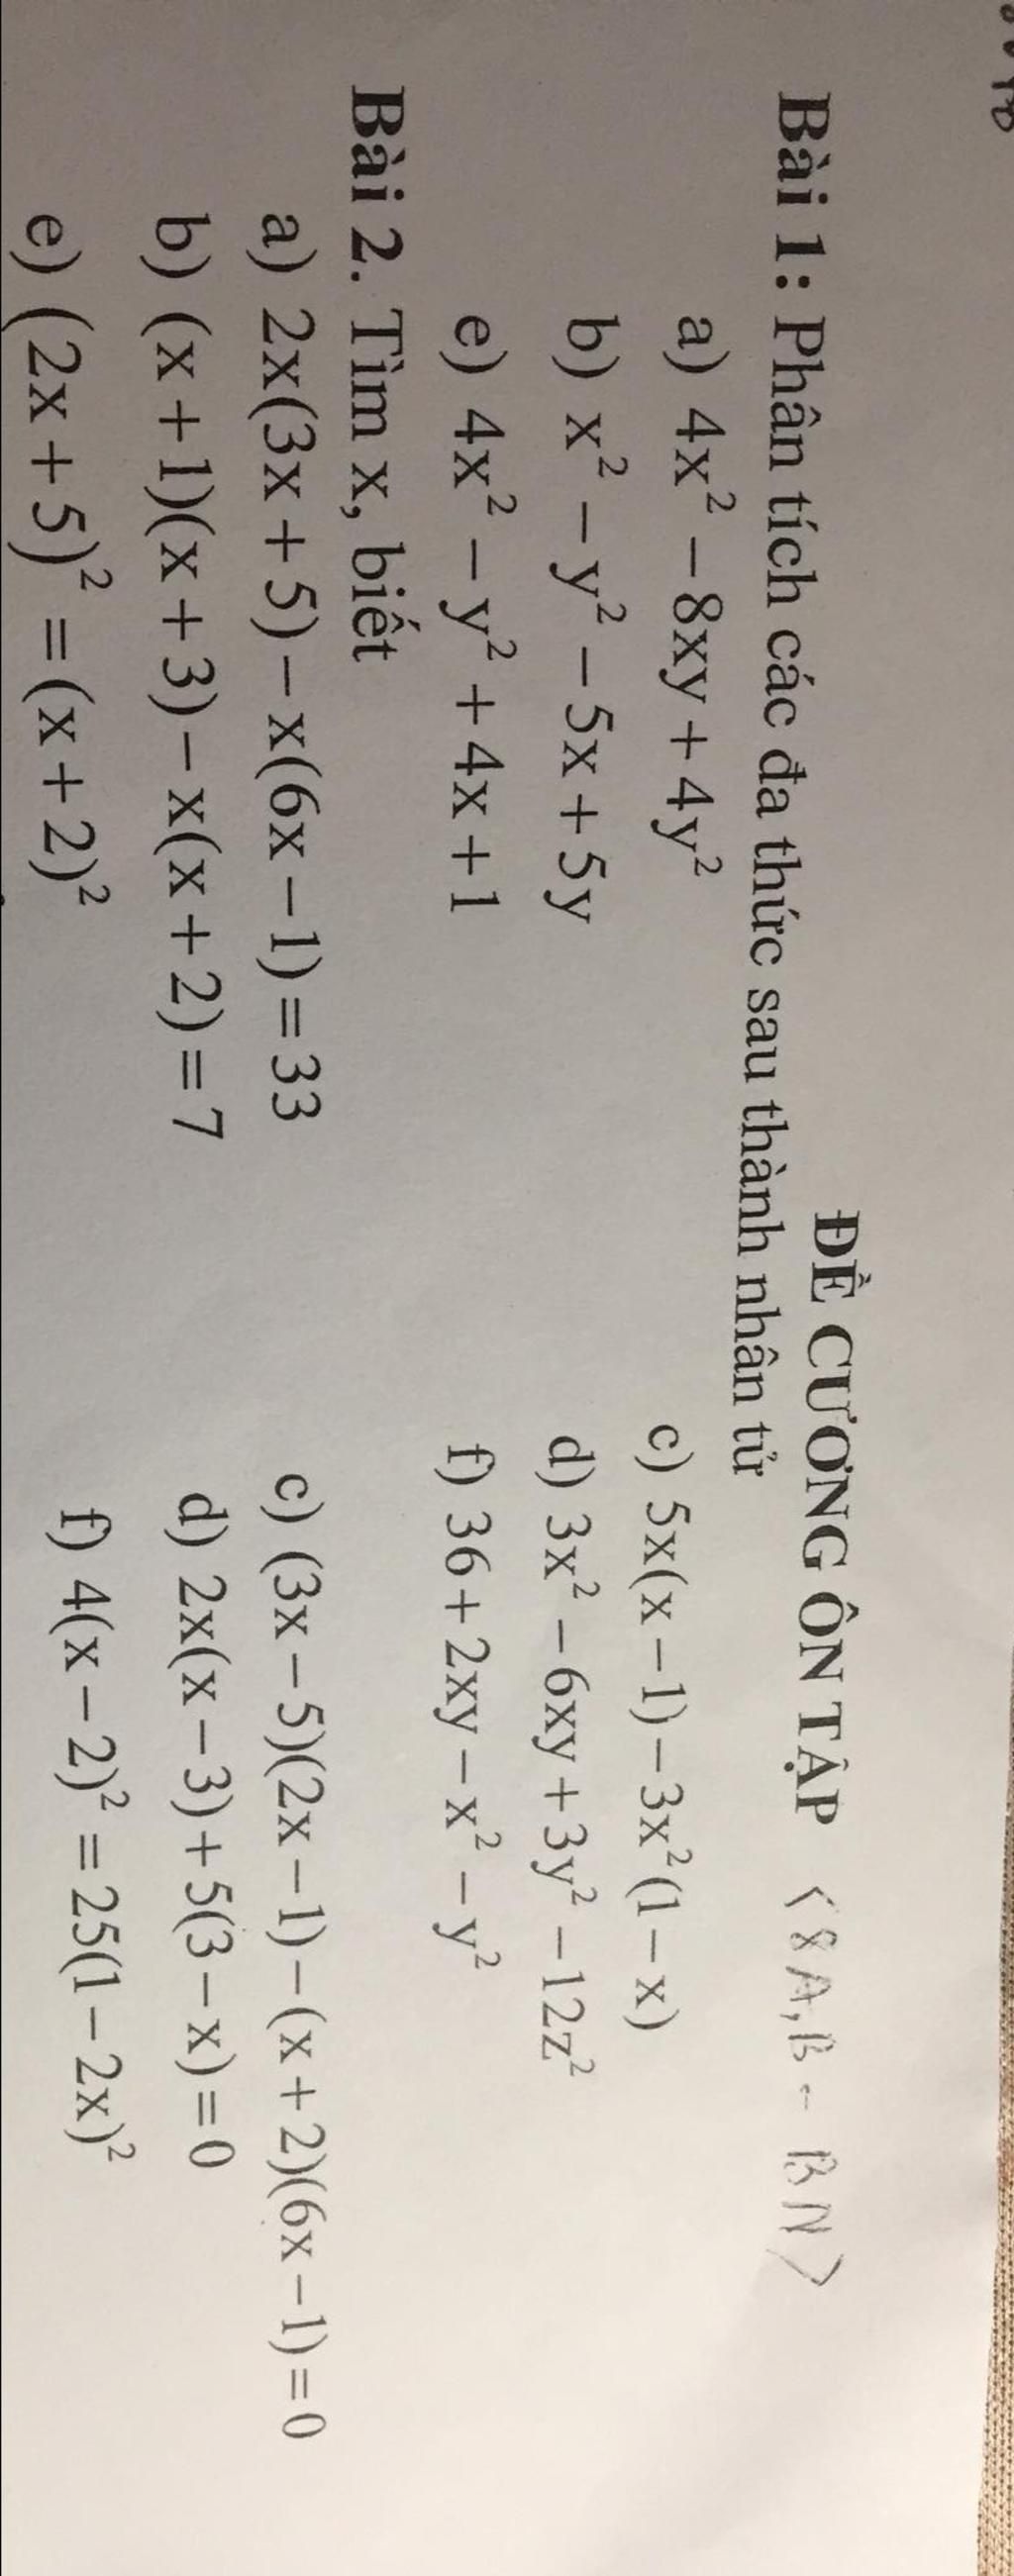 ĐỀ CƯƠNG ÔN TẬP <8A,B - BN>
Bài 1: Phân tích các đa thức sau thành nhân tử
a) 4x² – 8xy + 4y²
c) 5x(x – 1) – 3x²(1 – x)
b) x² – y² – 5x + 5y
d) 3x² – 6xy + 3y² – 12z²
e) 4x² – y² + 4x + 1
f) 36 + 2xy – x² – y²
Bài 2. Tìm x, biết
a) 2x(3x + 5) – x(6x – 1) = 33
c) (3x – 5)(2x – 1) – (x + 2)(6x – 1) = 0
b) (x + 1)(x + 3) – x(x + 2) = 7
d) 2x(x – 3) + 5(3 – x) = 0
e) (2x + 5)² = (x + 2)²
f) 4(x – 2)² = 25(1 – 2x)²